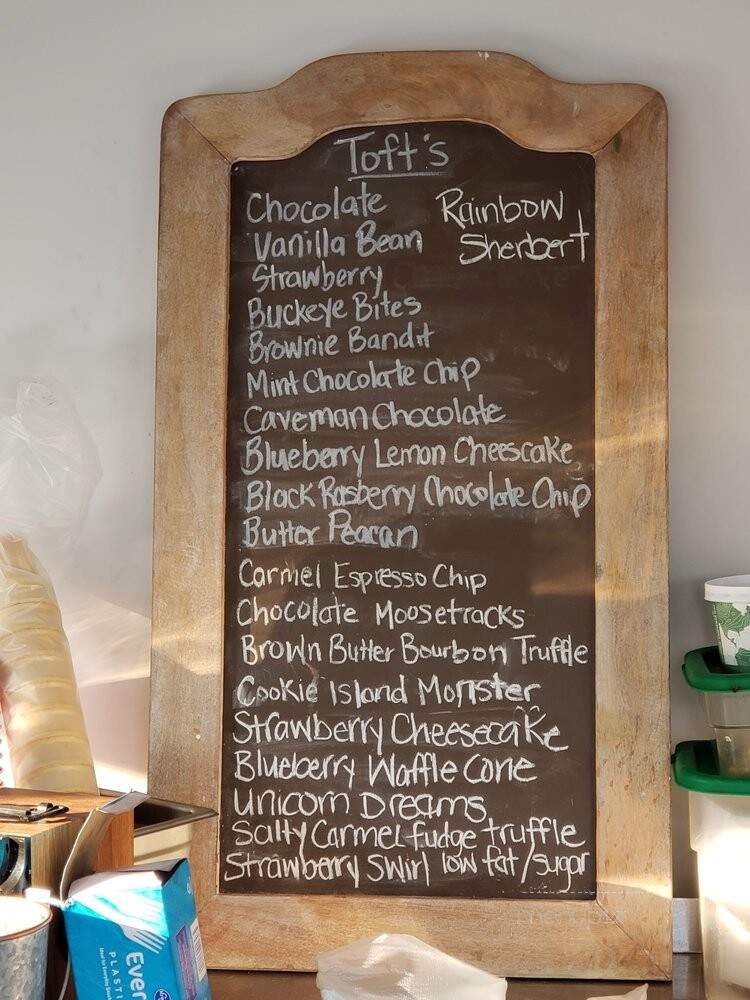 Toft's
Chocolate
Vanilla Bean
Strawberry
Buckeye Bites
Brownie Bandit
Mint Chocolate Chip
Caveman Chocolate
Blueberry Lemon Cheescake
Black Rasberry Chocolate Chip
Butter Peacan
Carmel Espresso Chip
Chocolate Moosetracks
Brown Butter Bourbon Truffle
Cookie Island Monster
Strawberry Cheesecake
Blueberry Waffle Cone
Unicorn Dreams
Salty Carmel fudge truffle
Strawberry Swirl low fat/sugar
Rainbow
Sherbert
PLASTI